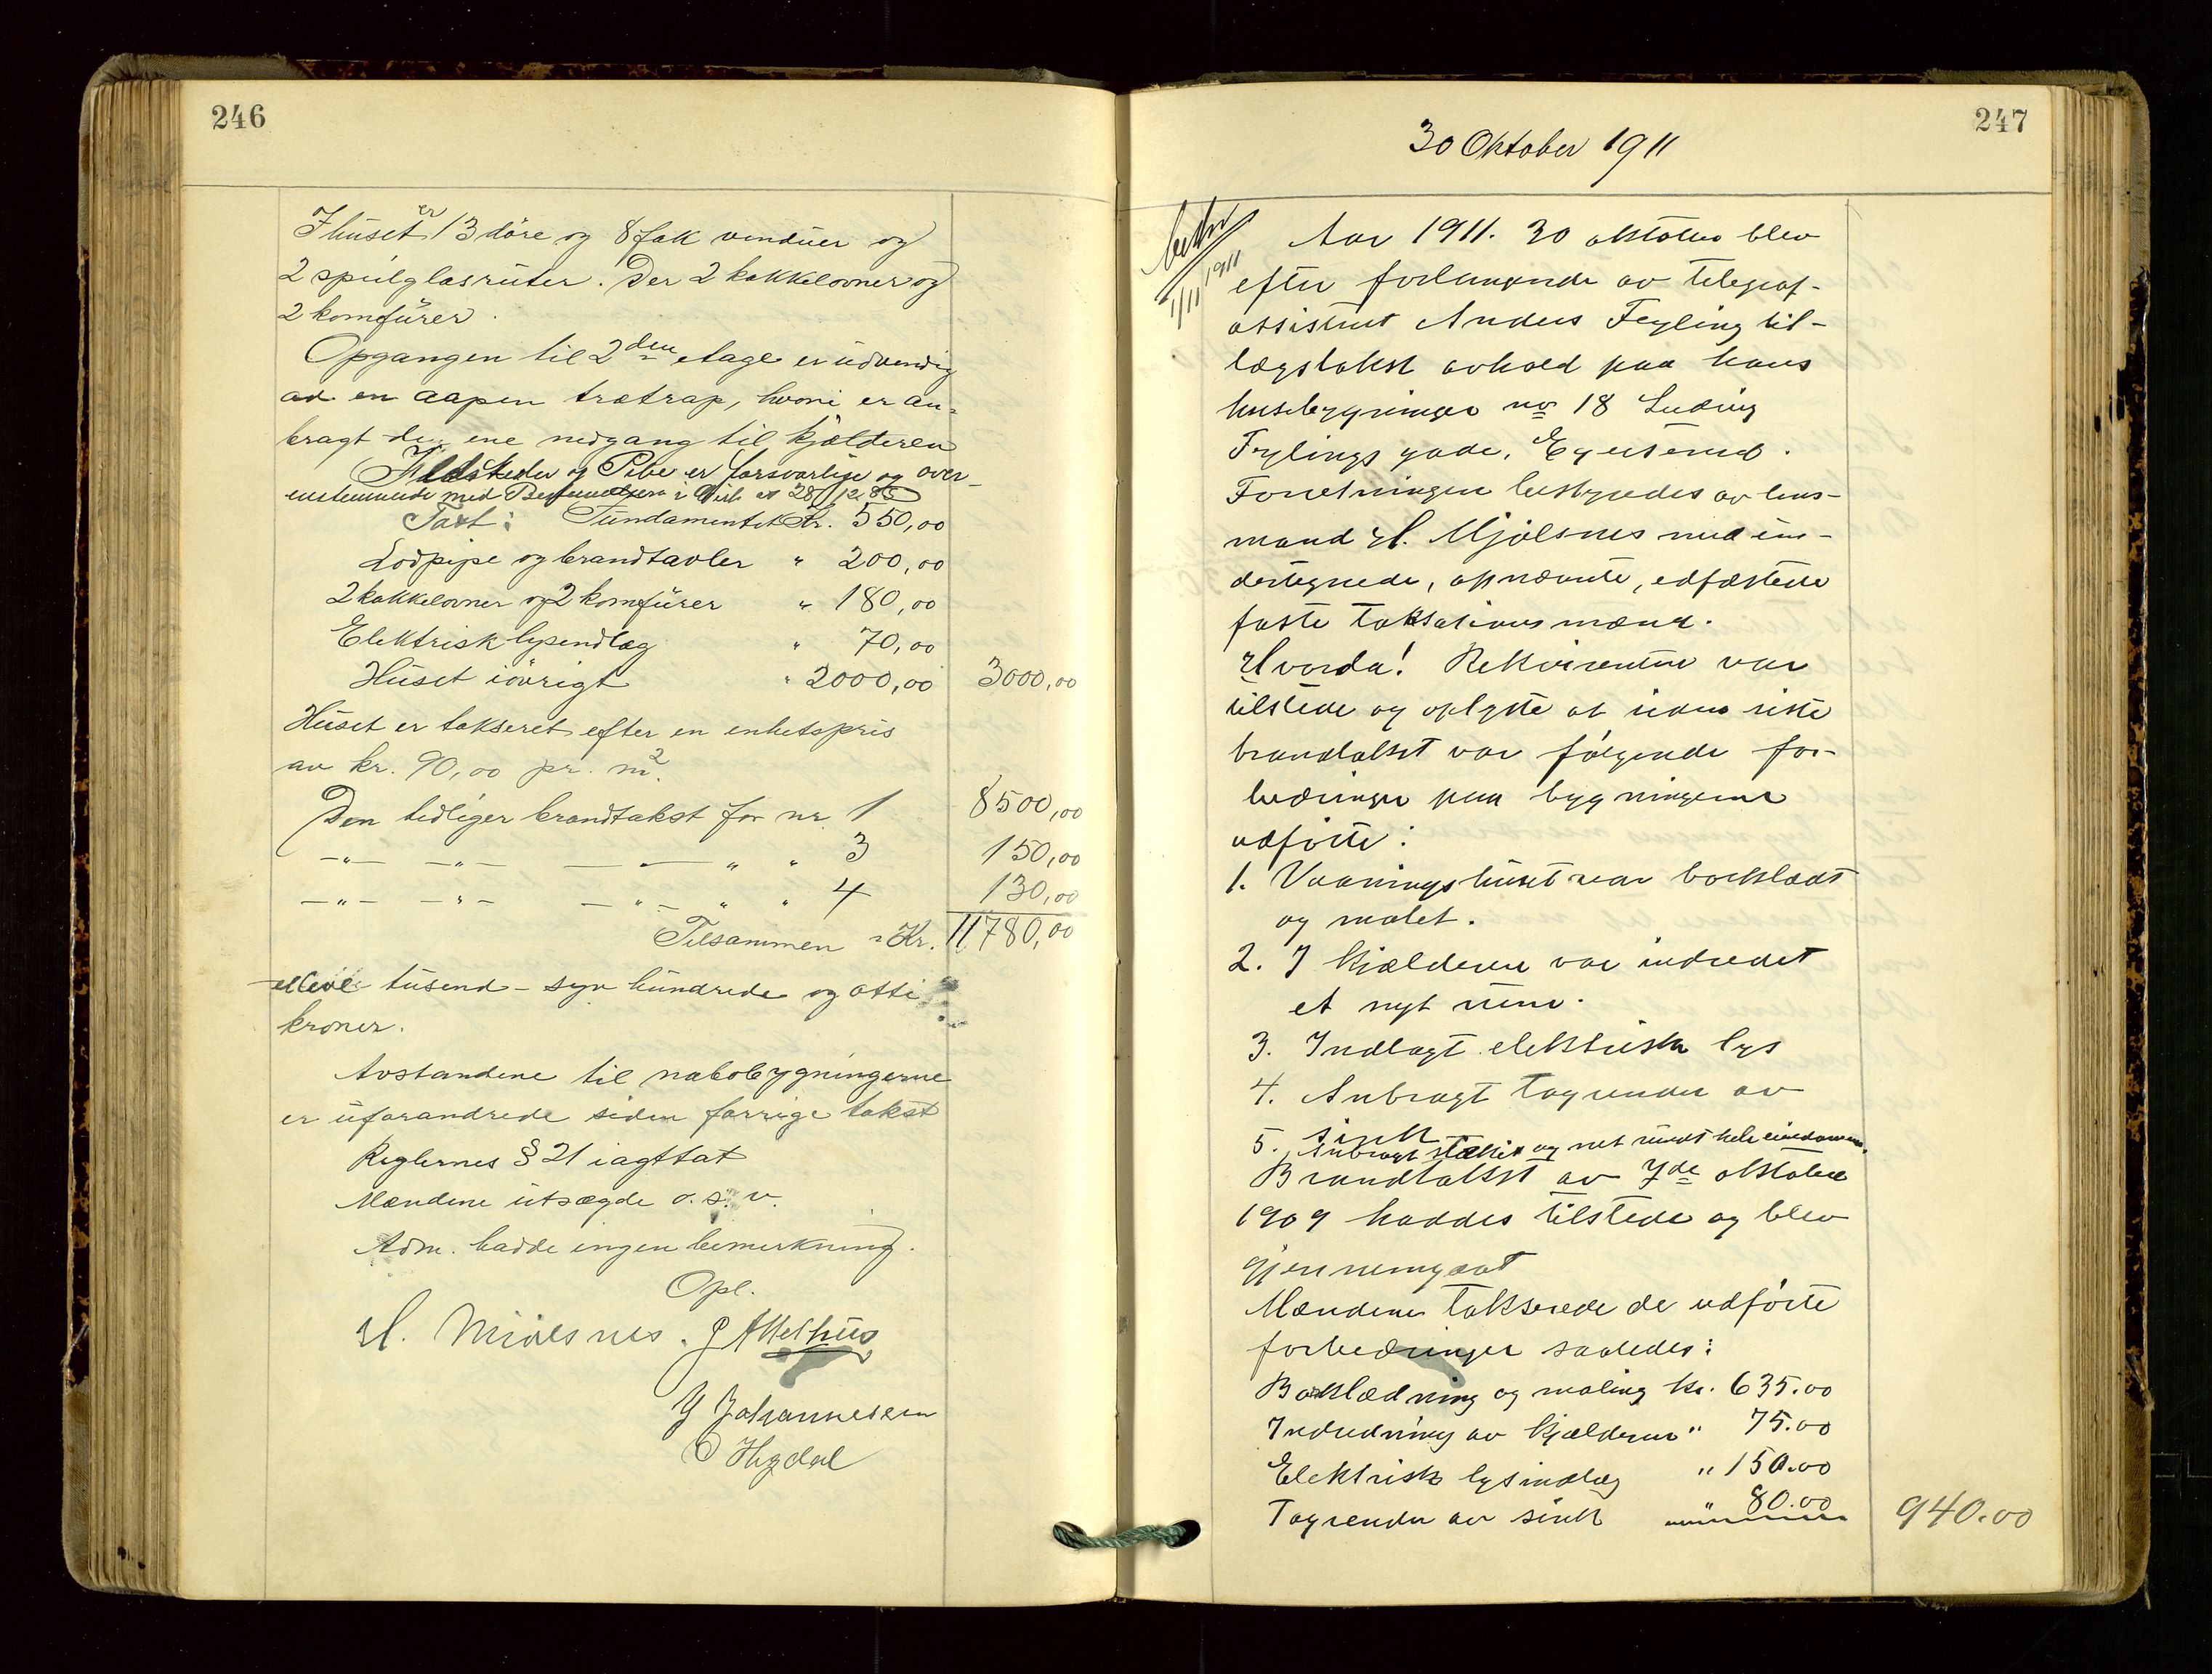 246
I huset er 13 döre og 8 fak vinduer og
2 speilglasruter. Der 2 kakkelovner og
2 komfürer.
Opgangen til 2den etage er udvendig
ad en aapen trætrap, hvori er an-
bragt den ene nedgang til kjælderen
Ildsteder og Pibe er forsvarlige og over-
enstemmende med Bestemmelsen i Cirk av 28/12 85
Taxt: Fundamentet Kr. 550,00
Lodpipe og brandtavler " 200,00
2 kakkelovner og 2 komfürer " 180,00
Elektrisk lysendlæg " 70,00
Huset iövrigt " 2000,00 3000,00
Huset er takseret efter en enhetspris
av kr. 90,00 pr. m2.
Den tidliger brandtakst for nr. 1 8500,00
—"— —"— — — " " 3 150,00
—"— —"— —"— " " 4 130,00
Tilsammen Kr. 11780,00
elleve tusend - syv hundrede og otti
kroner.
Avstandene til nabobygningerne
er uforandrede siden forrige takst
Reglernes § 21 iagttat
Mændene utsagde o. s. v.
Adm. hadde ingen bemerkning.
Opl.
H. Mjølsnes. J Methus
G Johannesen
O Hegdal
247
30 Oktober 1911
1/11 1911
Aar 1911. 30 oktober blev
efter forlangende av telegraf-
assistent Anders Feyling til-
lægstakst avhold paa hans
husebygninger no 18 Ludvig
Feylings gade, Egersund.
Forretningen bestyredes av lens-
mand H. Mjølsnes med un-
dertegnede, opnævnte, edfæstede
faste taksationsmænd.
Hvorda! Rekvirenten var
tilstede og oplyste at siden siste
brandtakst var følgende for-
bedringer paa bygningerne
udførte:
1. Vaaningshuset var bordklædt
og malet.
2. I kjælderen var indredet
et nyt rum.
3. Indlagt elektrisk lys
4. Anbragt tagrender av
sink
5. Anbragt stakit og net rundt hele eiendommen.
Brandtakst av 7de oktober
1909 haddes tilstede og blev
gjennemgaat
Mændene takserede de udførte
forbedringer saaledes:
Bordklædning og maling kr. 635.00
Indredning av kjælderen " 75.00
Elektrisk lysindlæg " 150.00
Tagrender av sink " 80.00 940.00